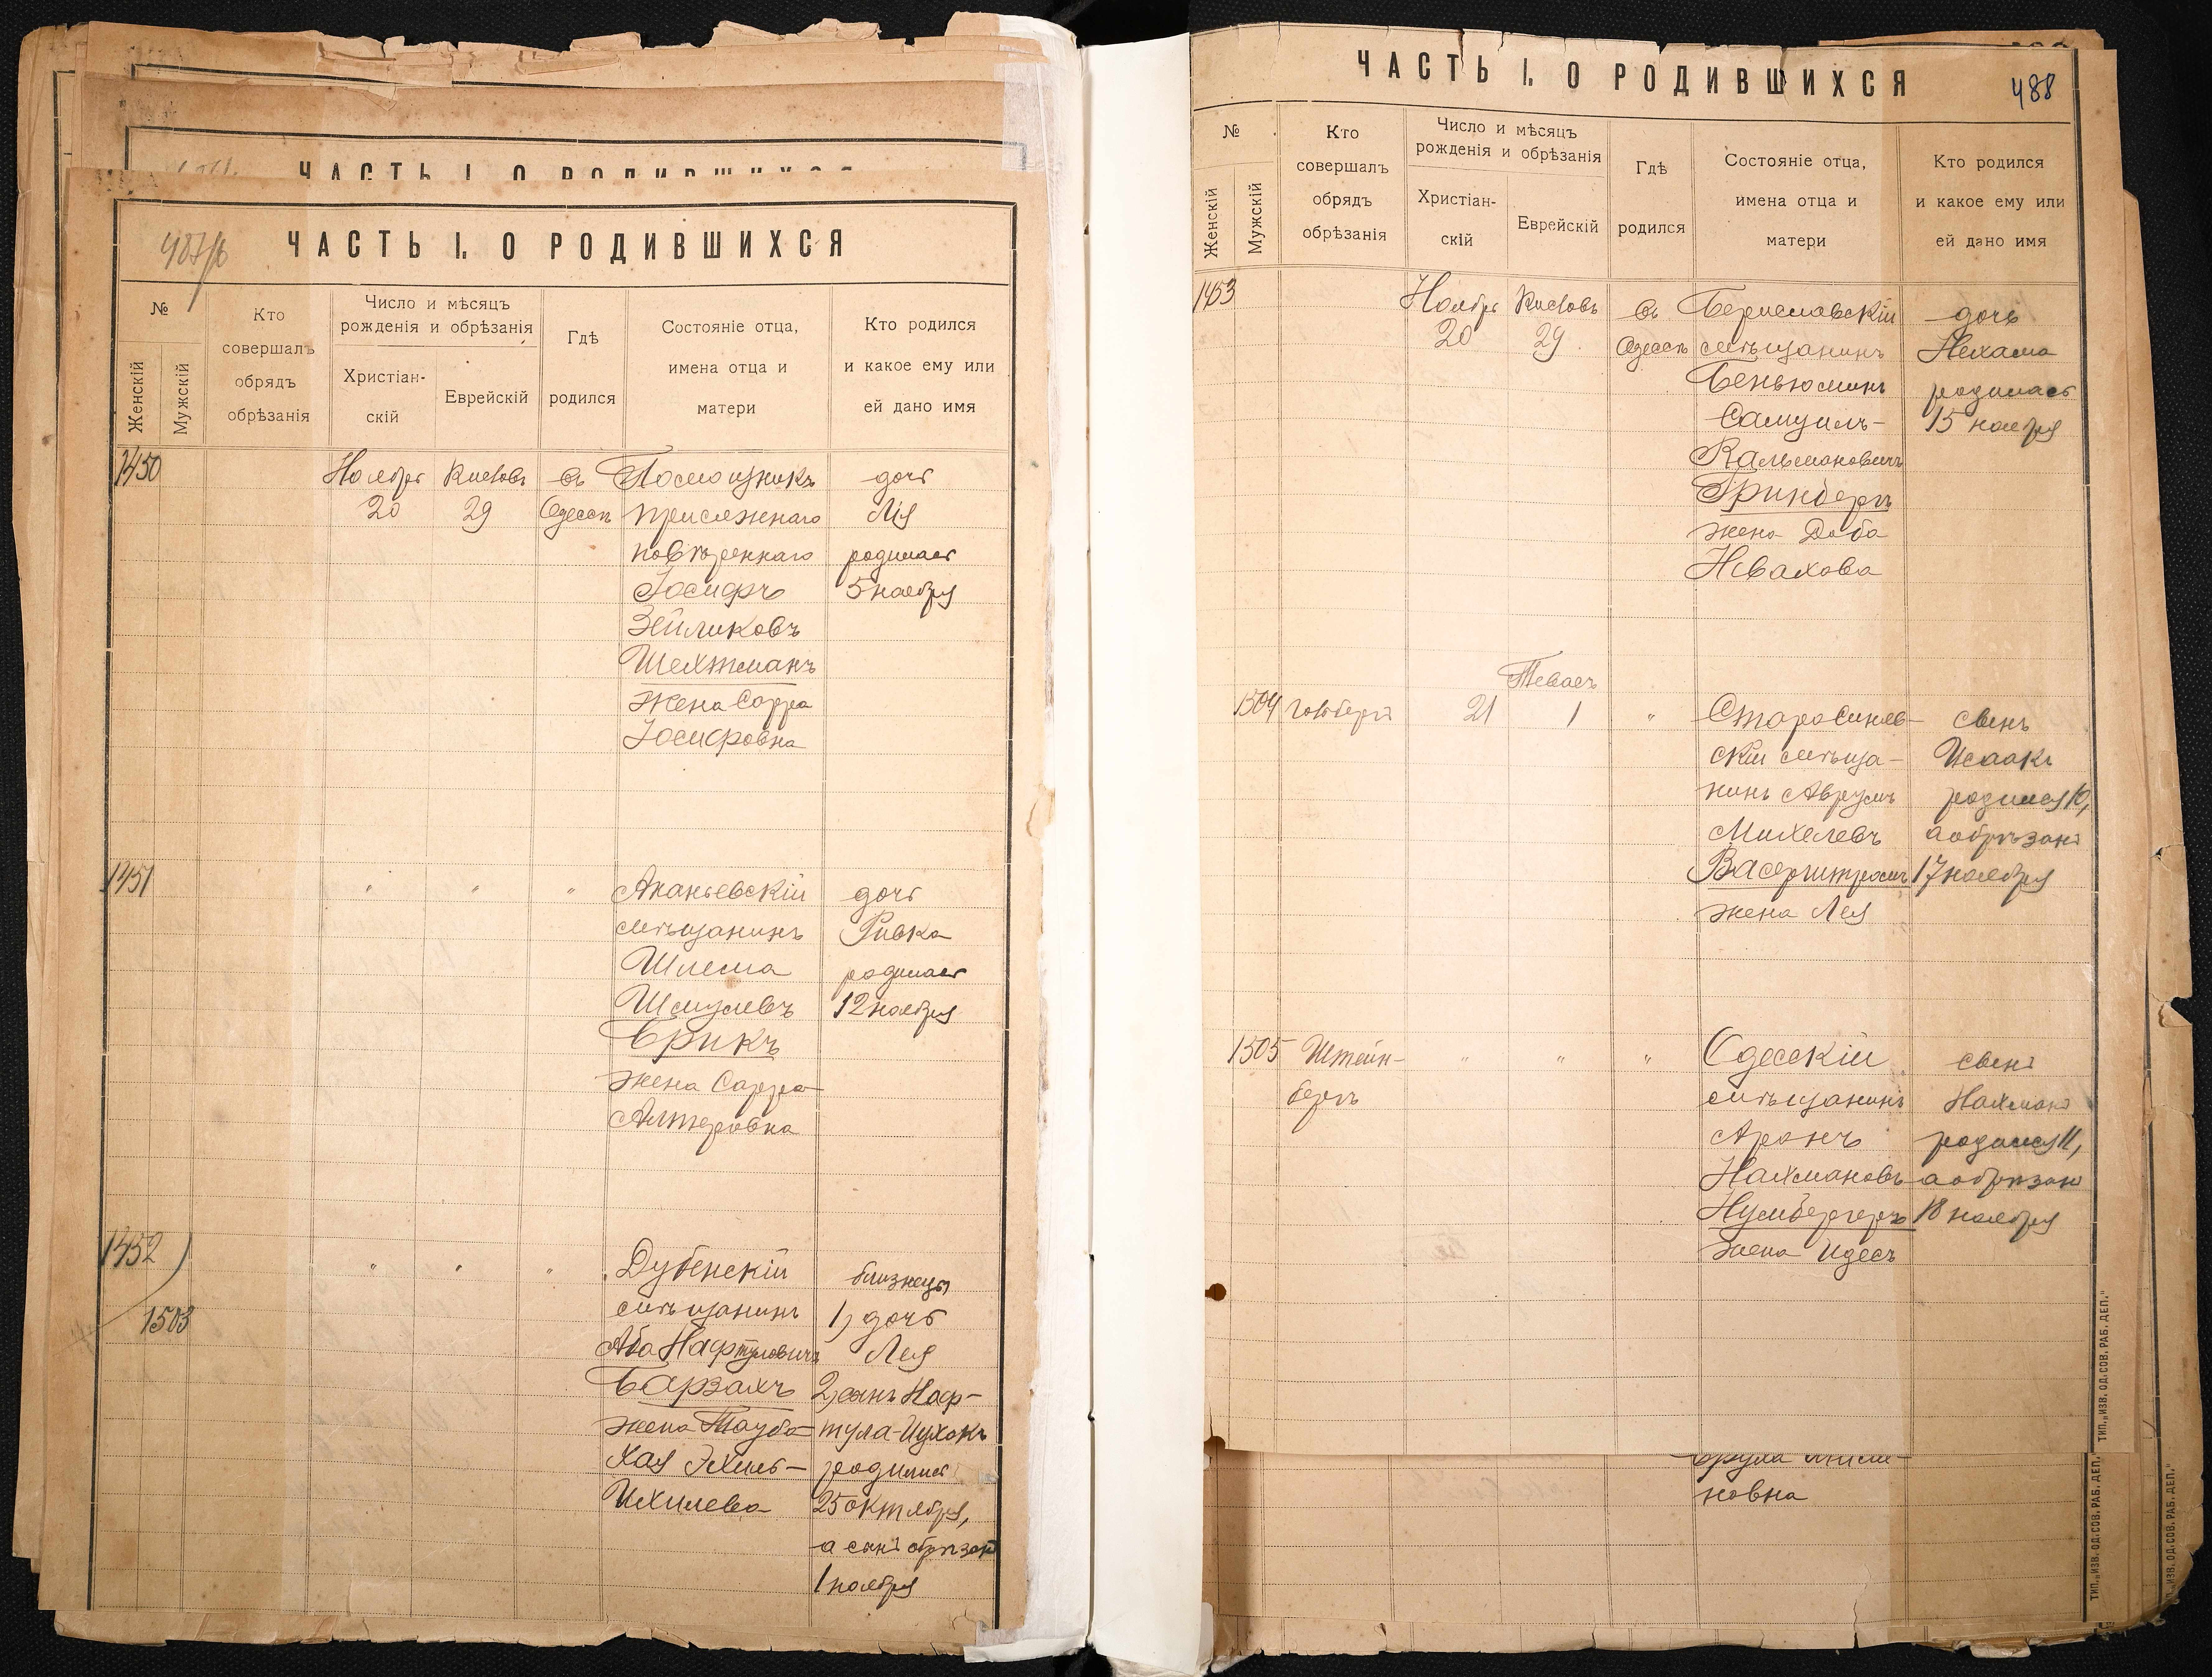 ЧАСТЬ I. О РОДИВШИХСЯ
487/б
ЧАСТЬ I. О РОДИВШИХСЯ
№
Женскій
Мужскій
Кто
совершалъ
обрядъ
обрѣзанія
Число и мѣсяцъ
рожденія и обрѣзанія
Христіан-
скій
Еврейскій
Гдѣ
родился
Состояніе отца,
имена отца и
матери
Кто родился
и какое ему или
ей дано имя
1450
Ноябрь
20
Кислевъ
29
въ
Одессѣ
Помощникъ
присяжнаго
повѣреннаго
Іосифъ
Зейликовъ
Шехтманъ
жена Сарра
Іосифовна
дочь
Лія
родилась
5 ноября
1451
" " "
Ананьевскій
мѣщанинъ
Шлема
Шмулевъ
Брикъ
жена Сарра
Алтеровна
дочь
Ривка
родилась
12 ноября
1452
1503
" " "
Дубенскій
мѣщанинъ
Аба Нафтуловичъ
Барзахъ
жена Тауба-
Хая Эхиль-
Ихилева
близнецы
1) дочь
Лея
2) сынъ Наф-
тула-Цухокъ
родились
25 октября,
а сынъ обрѣзанъ
1 ноября
ЧАСТЬ I. О РОДИВШИХСЯ
488
№
Женскій
Мужскій
Кто
совершалъ
обрядъ
обрѣзанія
Число и мѣсяцъ
рожденія и обрѣзанія
Христіан-
скій
Еврейскій
Гдѣ
родился
Состояніе отца,
имена отца и
матери
Кто родился
и какое ему или
ей дано имя
1453
Ноябрь
20
Кислевъ
29
въ
Одессѣ
Бериславскій
мѣщанинъ
Беньюминъ
Самуилъ-
Кальмановичъ
Гринбергъ
жена Доба
Невахова
дочь
Нехама
родилась
15 ноября
1504
Гольбергъ
21
Теваесъ
1
"
Старосиняв-
скій мѣща-
нинъ Аврумъ
Михелевъ
Васерштромъ
жена Лея
сынъ
Исаакъ
родился 10,
а обрѣзанъ
17 ноября
1505
Штейн-
бергъ
" " "
Одесскій
мѣщанинъ
Аронъ
Нахмановъ
Нумбергеръ
жена Идесъ
сынъ
Нахманъ
родился 11,
а обрѣзанъ
18 ноября
новна
ТИП. „ИЗВ. ОД. СОВ. РАБ. ДЕП."
ТИП. „ИЗВ. ОД. СОВ. РАБ. ДЕП."
ТИП. „ИЗВ. ОД. СОВ. РАБ. ДЕП."